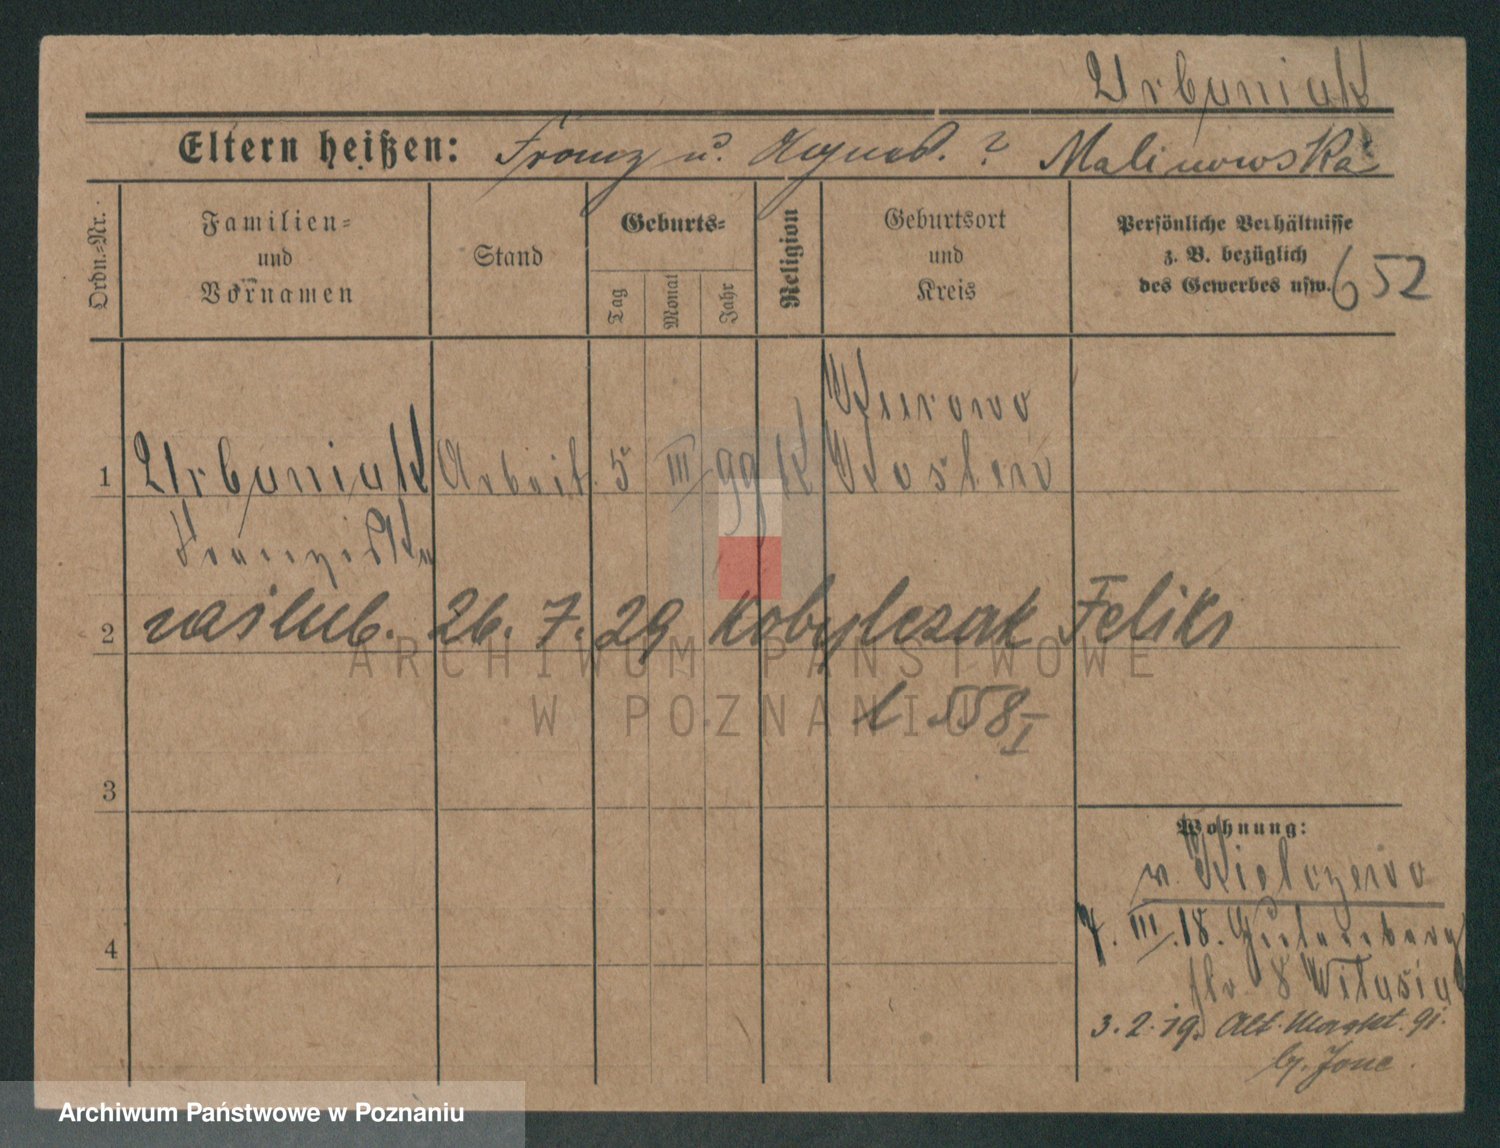 Urbaniak
Eltern heißen: Franz u. Agnes. ? Malinowska
Ordn.-Nr.
Familien-
und
Vornamen
Stand
Geburts-
Tag
Monat
Jahr
Religion
Geburtsort
und
Kreis
Persönliche Verhältnisse
z. B. bezüglich
des Gewerbes usw.
652
1 Urbaniak Arbeit. 5 III 99 K Kurowo
Kosten
Franziska
2 zaślub. 26. 7. 29 Kobylczak Feliks
t 558 I
3
Wohnung:
v. Kielczewo
4
7. III. 18. Gutenberg
str 8 Witusiak
3. 2. 19. Alt. Markt. 91.
b.
ARCHIWUM PAŃSTWOWE
W POZNANIU
Archiwum Państwowe w Poznaniu